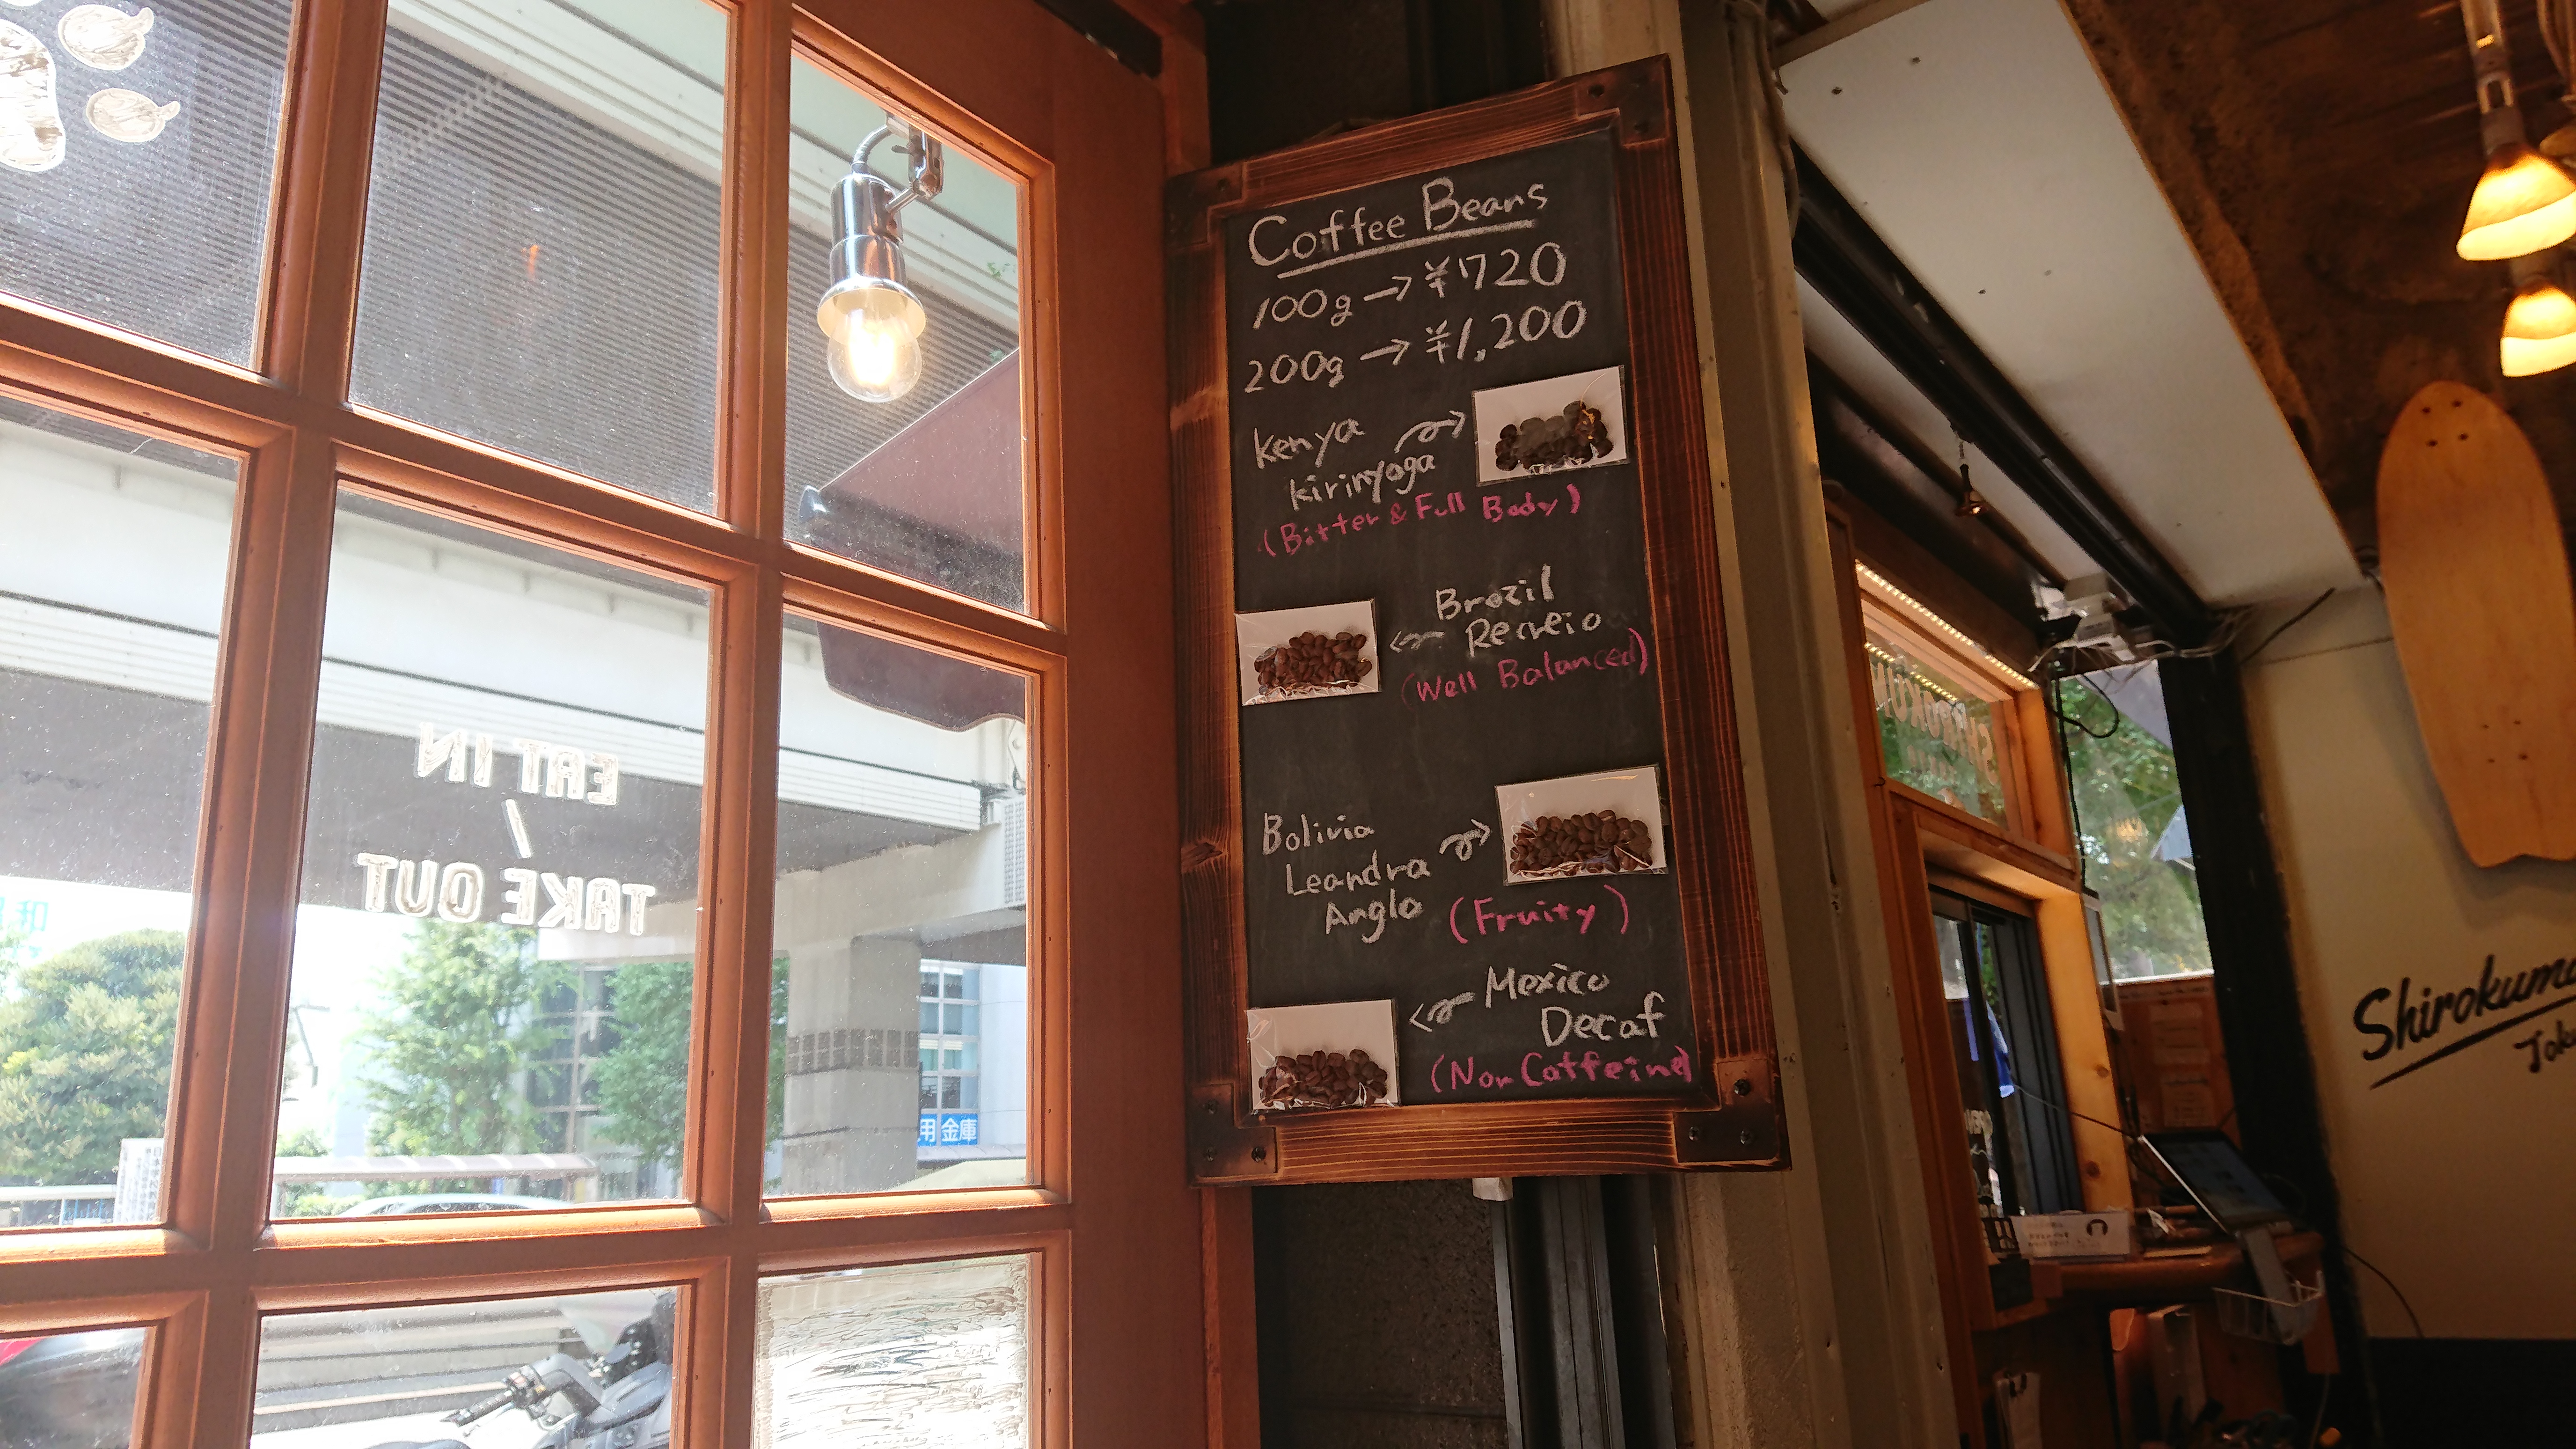 EAT IN
/
TAKE OUT
Coffee Beans
100g → ¥720
200g → ¥1,200
Kenya
Kirinyaga
(Bitter & Full Body)
Brazil
Recreio
(Well Balanced)
Bolivia
Leandra
Anglo
(Fruity)
Mexico
Decaf
(Non Caffeine)
金庫
Shirokuma